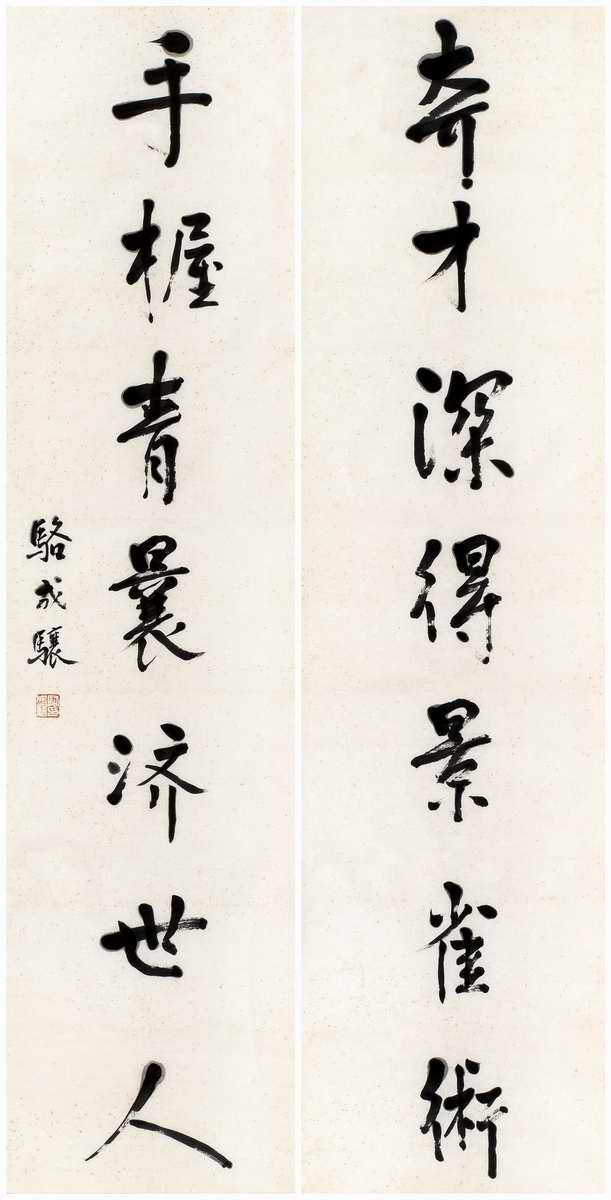 奇才深得景雀術
手握青曩济世人
駱成驤